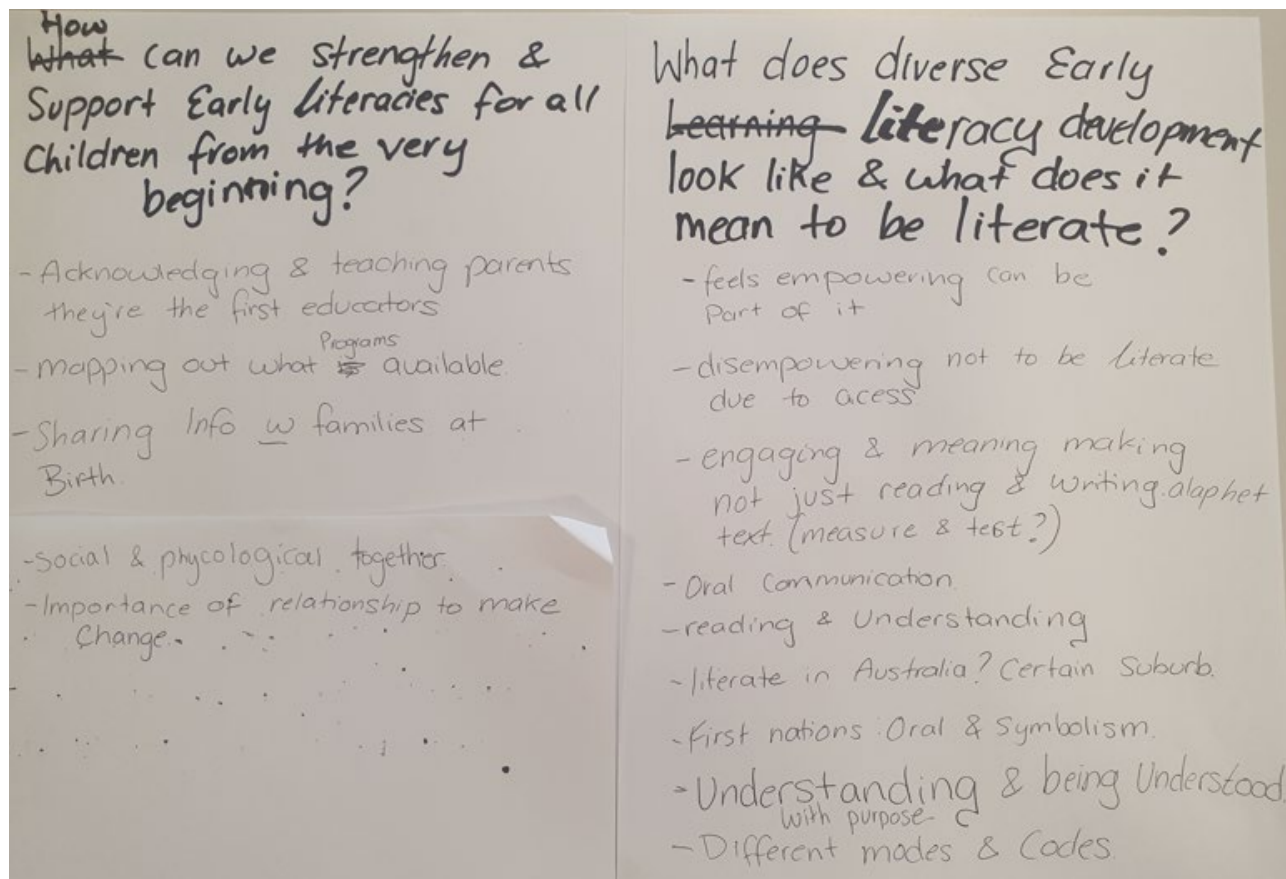 How
What can we strengthen &
Support Early literacies for all
Children from the very
beginning?
- Acknowledging & teaching parents
they're the first educators
- mapping out what Programs is available.
- Sharing Info w families at
Birth.
- Social & phycological together.
- Importance of relationship to make
Change.
What does diverse Early
Learning literacy development
look like & what does it
mean to be literate?
- feels empowering can be
Part of it
- disempowering not to be literate
due to acess
- engaging & meaning making
not just reading & writing.alaphet
text. (measure & test?)
- Oral Communication.
- reading & Understanding
- literate in Australia? Certain Suburb.
- First nations Oral & Symbolism.
- Understanding & being Understood.
with purpose
- Different modes & Codes.